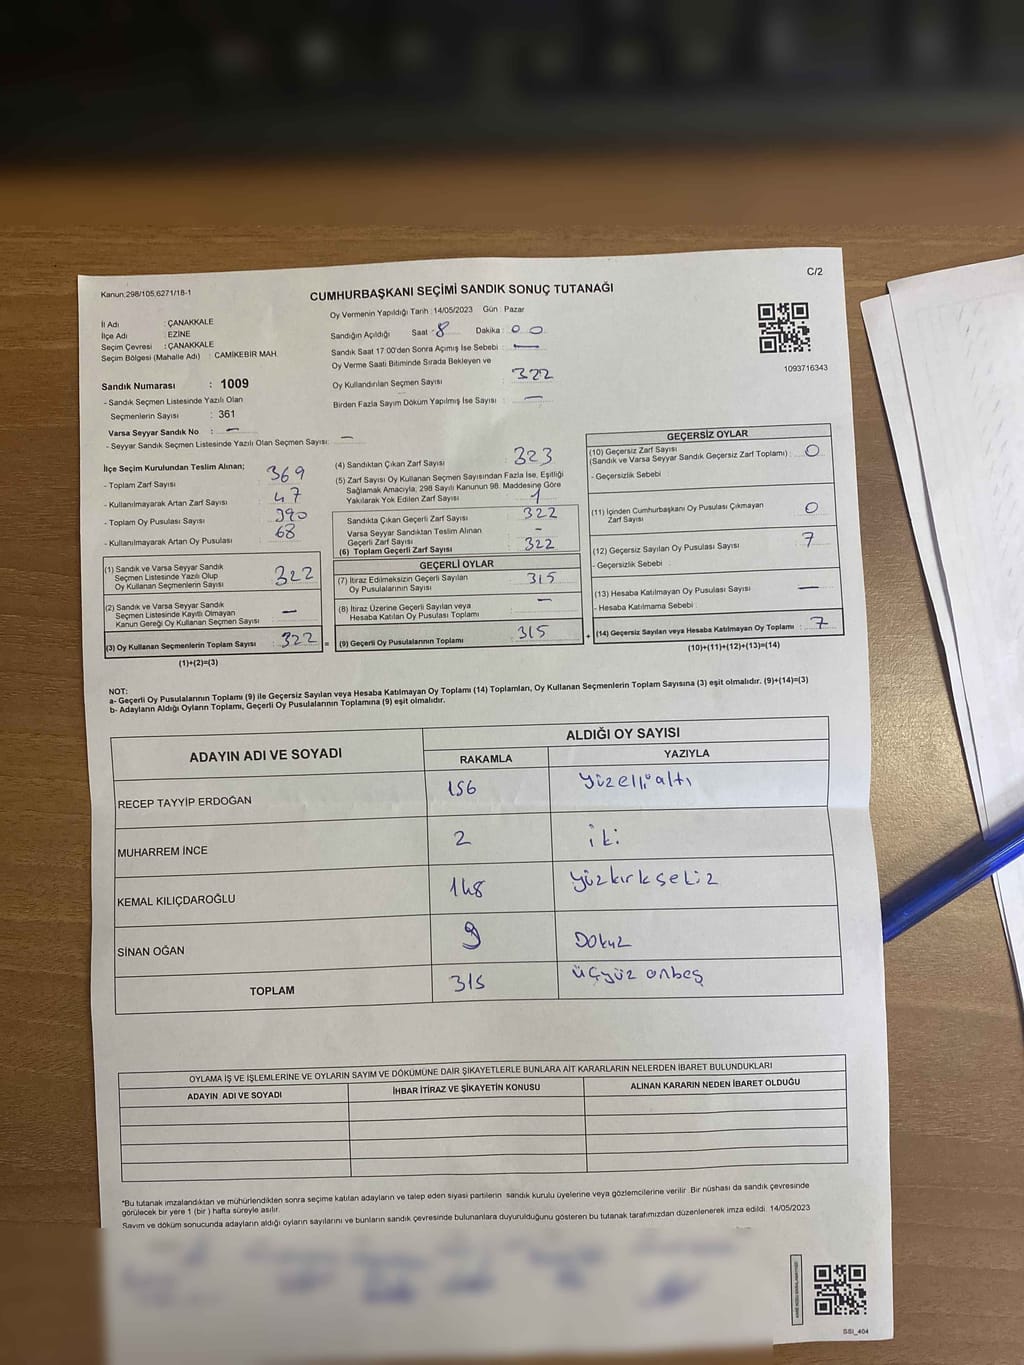 C/2
Kanun:298/105,6271/18-1
CUMHURBAŞKANI SEÇİMİ SANDIK SONUÇ TUTANAĞI
İl Adı : ÇANAKKALE
İlçe Adı : EZİNE
Seçim Çevresi : ÇANAKKALE
Seçim Bölgesi (Mahalle Adı) : CAMİKEBİR MAH.
Oy Vermenin Yapıldığı Tarih : 14/05/2023 Gün : Pazar
Sandığın Açıldığı Saat : 8 Dakika : 00
Sandık Saat 17:00'den Sonra Açımış İse Sebebi : —
Oy Verme Saati Bitiminde Sırada Bekleyen ve
Oy Kullandırılan Seçmen Sayısı : 322
Birden Fazla Sayım Döküm Yapılmış İse Sayısı : —
1093716343
Sandık Numarası : 1009
- Sandık Seçmen Listesinde Yazılı Olan
Seçmenlerin Sayısı : 361
Varsa Seyyar Sandık No : —
- Seyyar Sandık Seçmen Listesinde Yazılı Olan Seçmen Sayısı: —
İlçe Seçim Kurulundan Teslim Alınan;
- Toplam Zarf Sayısı : 369
- Kullanılmayarak Artan Zarf Sayısı : 47
- Toplam Oy Pusulası Sayısı : 390
- Kullanılmayarak Artan Oy Pusulası : 68
(1) Sandık ve Varsa Seyyar Sandık
Seçmen Listesinde Yazılı Olup
Oy Kullanan Seçmenlerin Sayısı : 322
(2) Sandık ve Varsa Seyyar Sandık
Seçmen Listesinde Kayıtlı Olmayan
Kanun Gereği Oy Kullanan Seçmen Sayısı : —
(3) Oy Kullanan Seçmenlerin Toplam Sayısı : 322 =
(1)+(2)=(3)
(4) Sandıktan Çıkan Zarf Sayısı : 323
(5) Zarf Sayısı Oy Kullanan Seçmen Sayısından Fazla İse, Eşitliği
Sağlamak Amacıyla, 298 Sayılı Kanunun 98. Maddesine Göre
Yakılarak Yok Edilen Zarf Sayısı : 1
Sandıkta Çıkan Geçerli Zarf Sayısı : 322
Varsa Seyyar Sandıktan Teslim Alınan
Geçerli Zarf Sayısı : -
(6) Toplam Geçerli Zarf Sayısı : 322
GEÇERLİ OYLAR
(7) İtiraz Edilmeksizin Geçerli Sayılan
Oy Pusulalarının Sayısı : 315
(8) İtiraz Üzerine Geçerli Sayılan veya
Hesaba Katılan Oy Pusulası Toplamı : —
(9) Geçerli Oy Pusulalarının Toplamı : 315 +
GEÇERSİZ OYLAR
(10) Geçersiz Zarf Sayısı
(Sandık ve Varsa Seyyar Sandık Geçersiz Zarf Toplamı) : 0
- Geçersizlik Sebebi :
(11) İçinden Cumhurbaşkanı Oy Pusulası Çıkmayan
Zarf Sayısı : 0
(12) Geçersiz Sayılan Oy Pusulası Sayısı : 7
- Geçersizlik Sebebi :
(13) Hesaba Katılmayan Oy Pusulası Sayısı : —
- Hesaba Katılmama Sebebi :
(14) Geçersiz Sayılan veya Hesaba Katılmayan Oy Toplamı : 7
(10)+(11)+(12)+(13)=(14)
NOT:
a- Geçerli Oy Pusulalarının Toplamı (9) ile Geçersiz Sayılan veya Hesaba Katılmayan Oy Toplamı (14) Toplamları, Oy Kullanan Seçmenlerin Toplam Sayısına (3) eşit olmalıdır. (9)+(14)=(3)
b- Adayların Aldığı Oyların Toplamı, Geçerli Oy Pusulalarının Toplamına (9) eşit olmalıdır.
ADAYIN ADI VE SOYADI ALDIĞI OY SAYISI
RAKAMLA YAZIYLA
RECEP TAYYİP ERDOĞAN 156 yüzelli altı
MUHARREM İNCE 2 iki
KEMAL KILIÇDAROĞLU 148 yüzkırksekiz
SİNAN OĞAN 9 Dokuz
TOPLAM 315 üçyüz onbeş
OYLAMA İŞ VE İŞLEMLERİNE VE OYLARIN SAYIM VE DÖKÜMÜNE DAİR ŞİKAYETLERLE BUNLARA AİT KARARLARIN NELERDEN İBARET BULUNDUKLARI
ADAYIN ADI VE SOYADI İHBAR İTİRAZ VE ŞİKAYETİN KONUSU ALINAN KARARIN NEDEN İBARET OLDUĞU
*Bu tutanak imzalandıktan ve mühürlendikten sonra seçime katılan adayların ve talep eden siyasi partilerin sandık kurulu üyelerine veya gözlemcilerine verilir. Bir nüshası da sandık çevresinde
görülecek bir yere 1 (bir) hafta süreyle asılır.
Sayım ve döküm sonucunda adayların aldığı oyların sayılarını ve bunların sandık çevresinde bulunanlara duyurulduğunu gösteren bu tutanak tarafımızdan düzenlenerek imza edildi. 14/05/2023
SSI_404